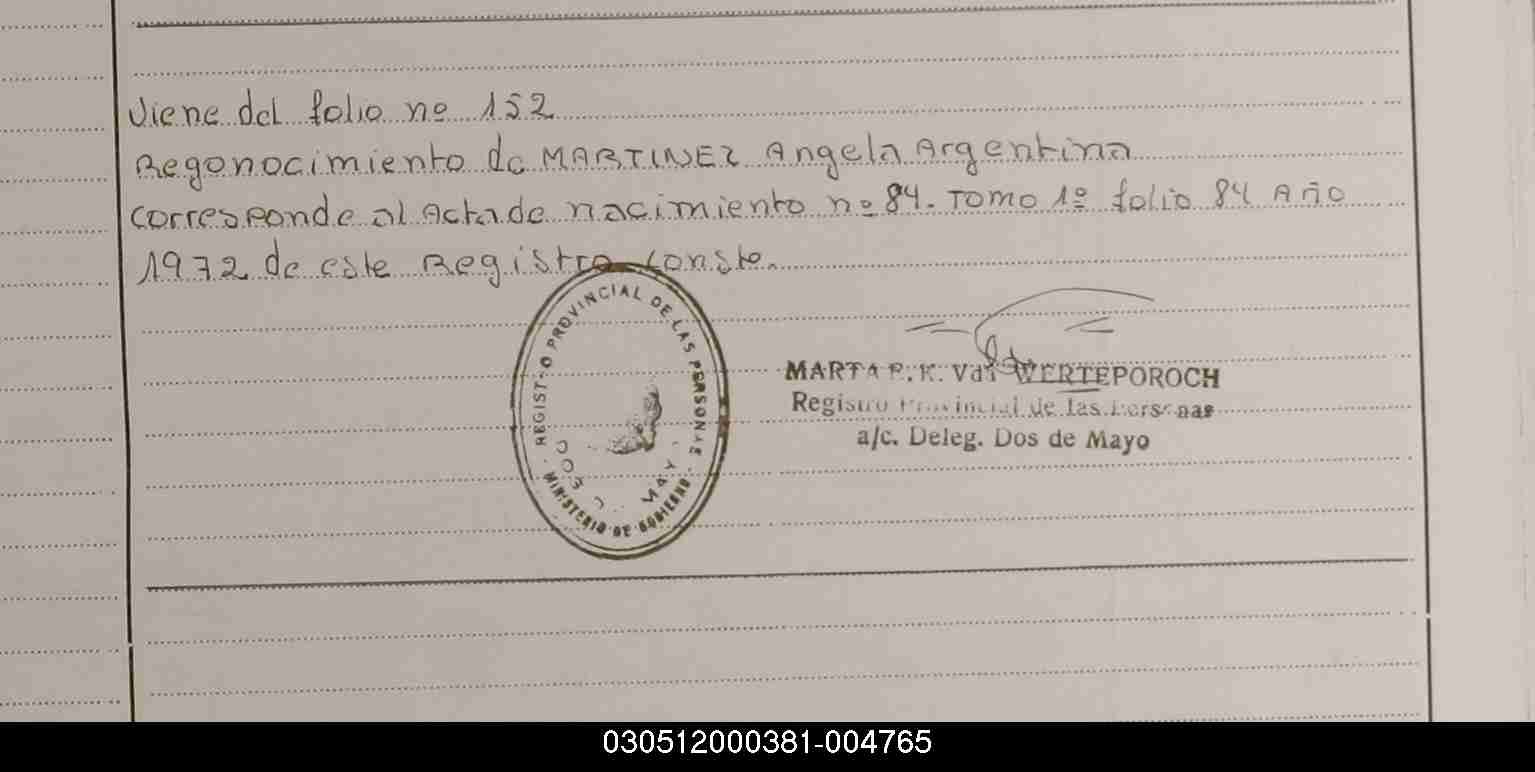 Viene del folio nº 152
Regonocimiento de MARTINEZ Angela Argentina
corresponde al Acta de nacimiento nº 84. Tomo 1º folio 84 Año
1972 de este Registro conste.
REGISTRO PROVINCIAL DE LAS PERSONAS
MINISTERIO DE GOBIERNO
MAY
MARTA R. K. Vda WERTEPOROCH
Registro Provincial de las Personas
a/c. Deleg. Dos de Mayo
030512000381-004765